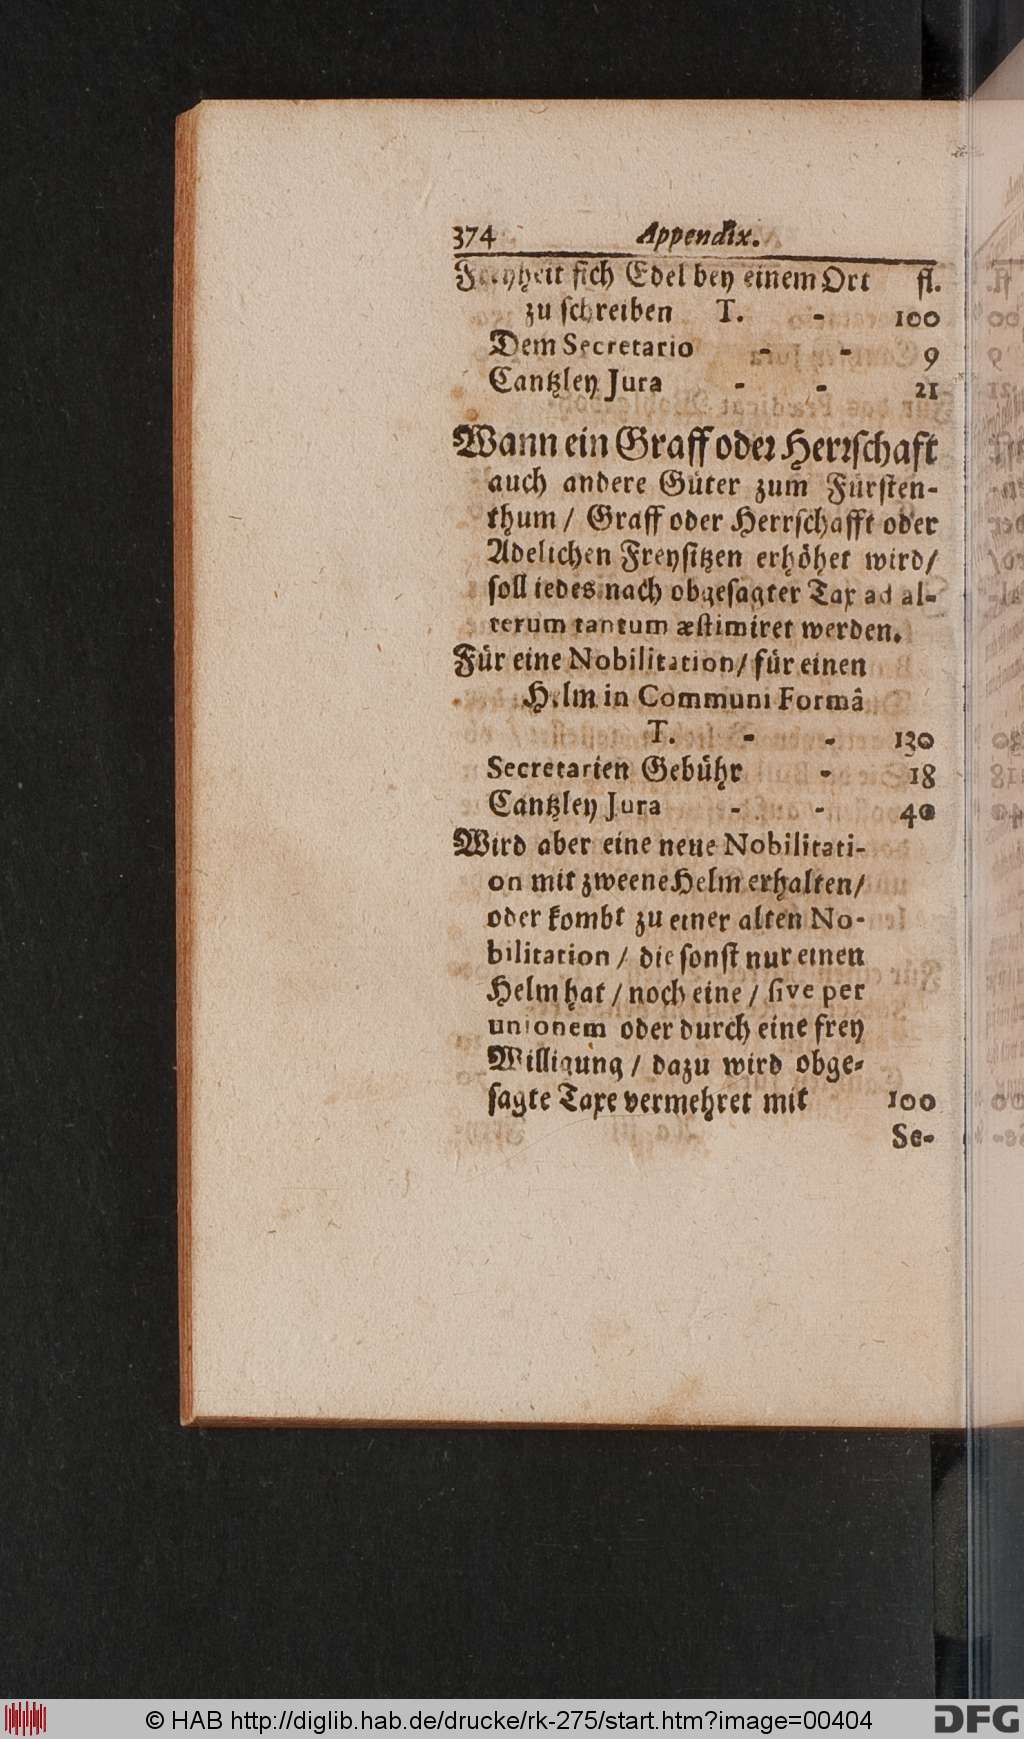 374 Appendix.
Freyheit sich Edel bey einem Ort fl.
zu schreiben T. - 100
Dem Secretario - - 9
Cantzley Jura - - 21
Wann ein Graff oder Herrschafft
auch andere Güter zum Fürsten-
thum / Graff oder Herrschafft oder
Adelichen Freysitzen erhöhet wird /
soll iedes nach obgesagter Tax ad al-
terum tantum æstimiret werden.
Für eine Nobilitation / für einen
Helm in Communi Formâ
T. - - 130
Secretarien Gebühr - 18
Cantzley Jura - - 40
Wird aber eine neue Nobilitati-
on mit zweene Helm erhalten /
oder kombt zu einer alten No-
bilitation / die sonst nur einen
Helm hat / noch eine / sive per
unionem oder durch eine frey
Willigung / dazu wird obge-
sagte Taxe vermehret mit 100
Se-
© HAB http://diglib.hab.de/drucke/rk-275/start.htm?image=00404
DFG